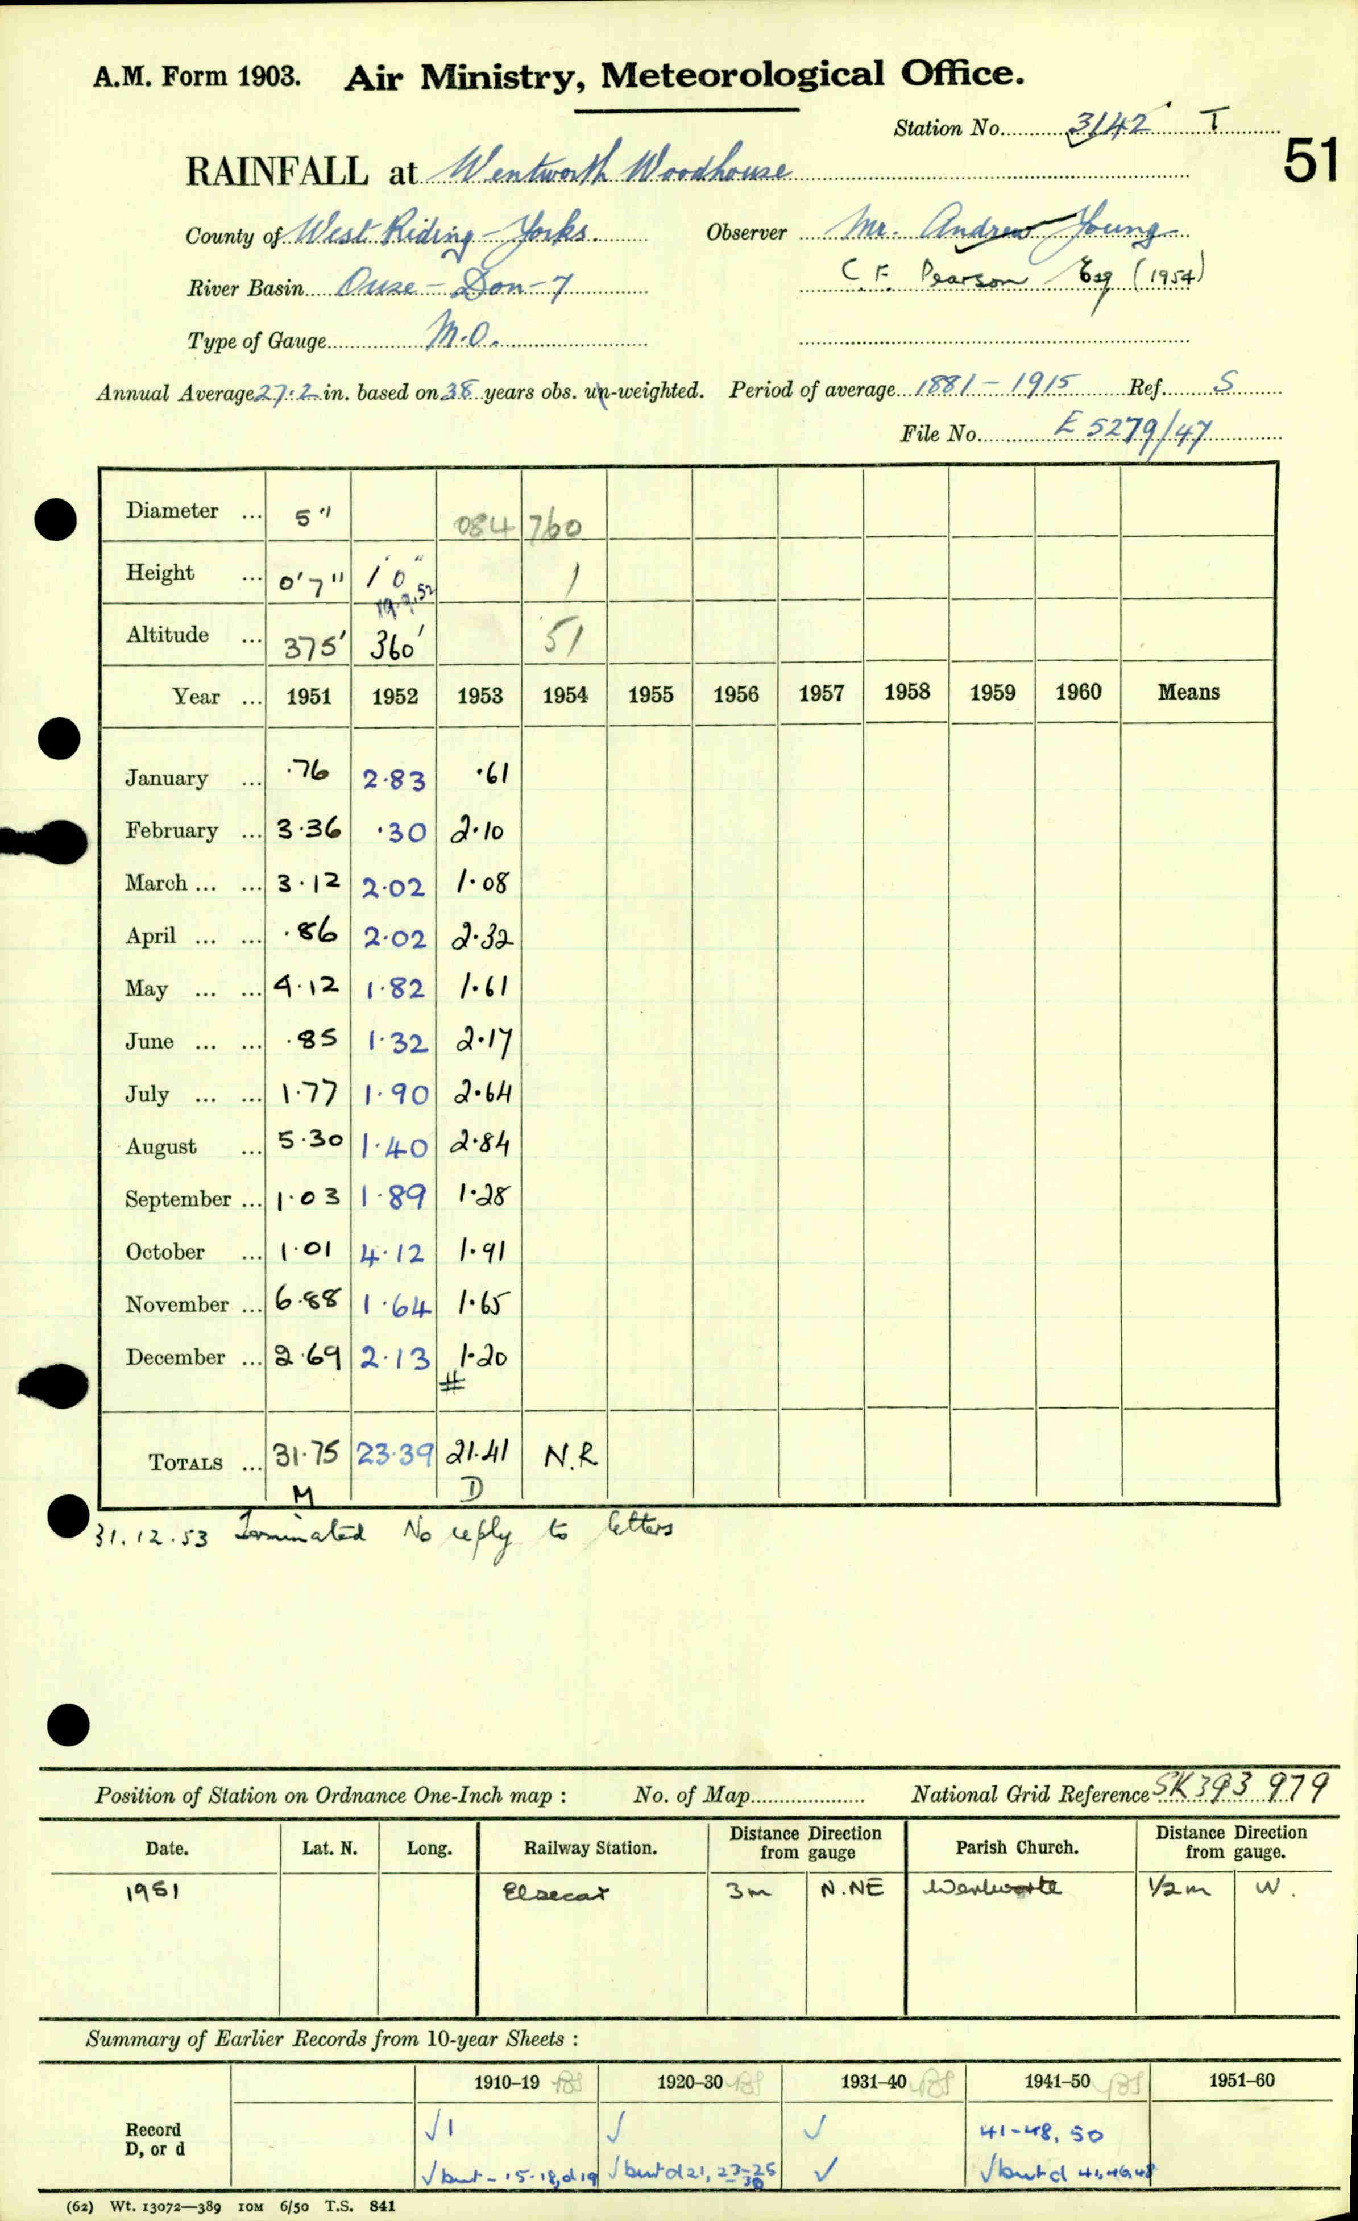 A.M. Form 1903. Air Ministry, Meteorological Office.
Station No. 3142 T
51
RAINFALL at Wentworth Woodhouse
County of West Riding - Yorks. Observer Mr. Andrew Young
C. F. Pearson Esq (1954)
River Basin Ouse - Don - 7
Type of Gauge M.O.
Annual Average 27.2 in. based on 38 years obs. un-weighted. Period of average 1881 - 1915 Ref. S
File No. E 5279/47
Diameter ... 5" 084 760
Height ... 0'7" 1'0" 1
19.9.52
Altitude ... 375' 360' 51
Year ... 1951 1952 1953 1954 1955 1956 1957 1958 1959 1960 Means
January ... .76 2.83 .61
February ... 3.36 .30 2.10
March ... ... 3.12 2.02 1.08
April ... ... .86 2.02 2.32
May ... ... 4.12 1.82 1.61
June ... ... .85 1.32 2.17
July ... ... 1.77 1.90 2.64
August ... 5.30 1.40 2.84
September ... 1.03 1.89 1.28
October ... 1.01 4.12 1.91
November ... 6.88 1.64 1.65
December ... 2.69 2.13 1.20
#
TOTALS ... 31.75 23.39 21.41 N.R
M D
31.12.53 Terminated No reply to letters
Position of Station on Ordnance One-Inch map : No. of Map National Grid Reference SK 393 979
Date. Lat. N. Long. Railway Station. Distance Direction from gauge Parish Church. Distance Direction from gauge.
1951 Elsecar 3m N.NE Wentworth 1/2m W.
Summary of Earlier Records from 10-year Sheets :
1910-19 1920-30 1931-40 1941-50 1951-60
Record √1 √ √ 41-48, 50
D, or d √ but - 15-18, d 19 √ but d 21, 23-25 30 √ √ but d 41, 46, 48
(62) Wt. 13072—389 10M 6/50 T.S. 841